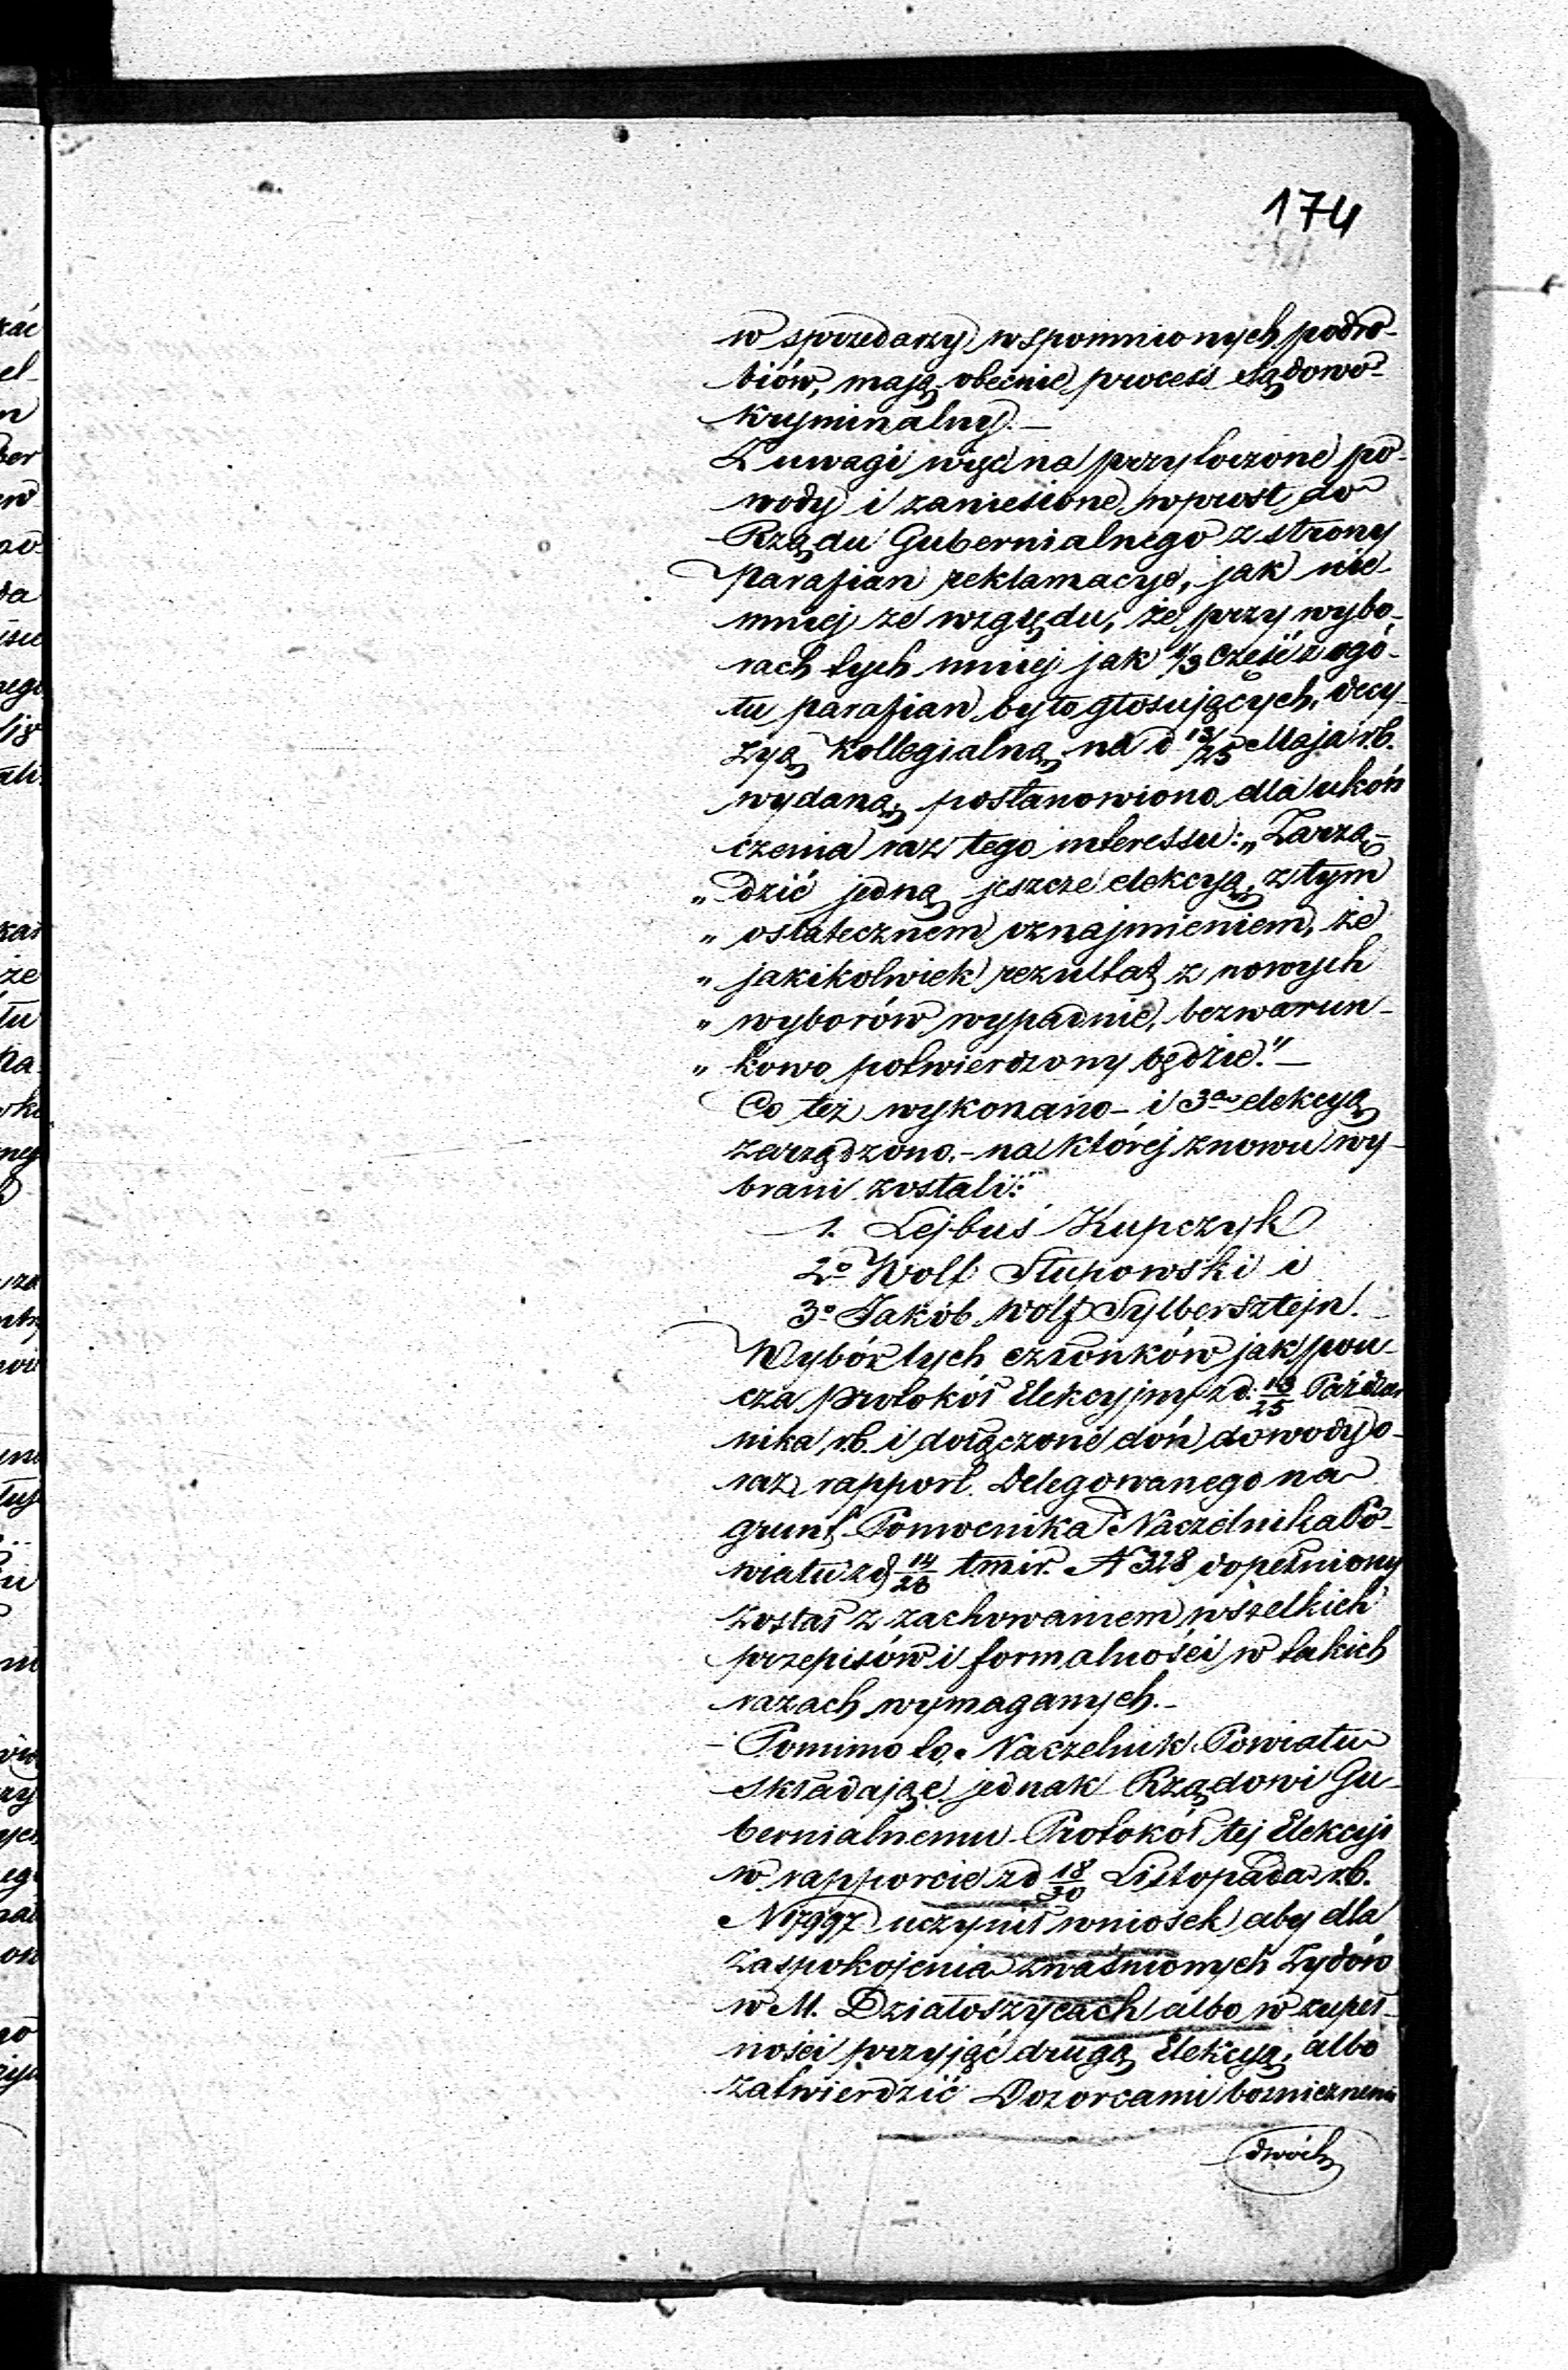 174
w sprzedarzy wspomnionych podro-
biów, mają obecnie process Sądowo-
kryminalny.—
Z uwagi więc na przytoczone po-
wody i zaniesione wprost do
Rządu Gubernialnego z strony
Parafian reklamacye, jak nie-
mniej ze względu, że przy wybo-
rach tych mniej jak 1/3 część z ogó-
łu parafian było głosujących, decy-
zyą Kollegialną na d 13/25 Maja r.b.
wydaną, postanowiono dla ukoń
czenia raz tego interessu: „Zarzą-
„dzić jedną jeszcze elekcyą, z tym
„ostatecznem oznajmieniem, że
„jakikolwiek rezultat z nowych
„wyborów wypadnie, bezwarun-
„kowo potwierdzony będzie."—
Co też wykonano - i 3a elekcyą
zarządzono,- na której znowu wy-
brani zostali:
1. Lejbuś Kupczyk
2o Wolf Słupowski i
3o Jakób Wolf Sylbersztejn.
Wybór tych członków jak pou-
cza protokół Elekcyjny z d: 13/25 Paździer
nika r.b. i dołączone doń dowody o-
raz rapport Delegowanego na
grunt Pomocnika Naczelnika Po-
wiatu z d 14/26 tmir. N 328 dopełniony
został z zachowaniem wszelkich
przepisów i formalności w takich
razach wymaganych.-
Pomimo to, Naczelnik Powiatu
składając jednak Rządowi Gu-
bernialnemu Protokół tej Elekcyi
w rapporcie z d 18/30 Listopada r.b.
N 17997 uczynił wniosek aby dla
zaspokojenia zwaśnionych Żydów
w M. Działoszycach albo w zupeł-
ności przyjąć drugą Elekcyą, albo
zatwierdzić Dozorcami boznicznemi
dwóch